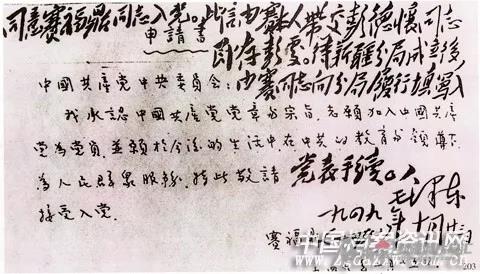 同意賽福鼎同志入党。此信由賽本人带交彭德懷同志
申請書
即存彭處。待新疆分局成立後
中國共產党中共委員会:
由賽同志向分局履行填写入
我承認中國共產党党章和宗旨,志願加入中國共產
党为党員,並願於今後的生活中在中共的教育和領導下
為人民群衆服務,特此敬請
党表手續。
接受入党.
毛泽东
一九四九年十月
賽福鼎
中国档案资讯网
203